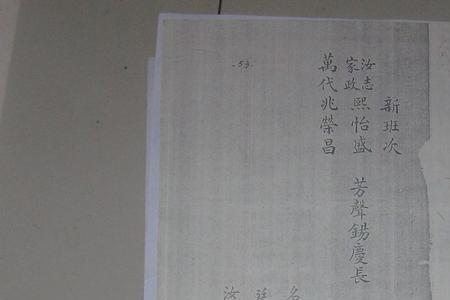 新班次
汝志
家政
熙怡盛 芳聲錫慶長
萬代兆榮昌
53
名
廷
汝